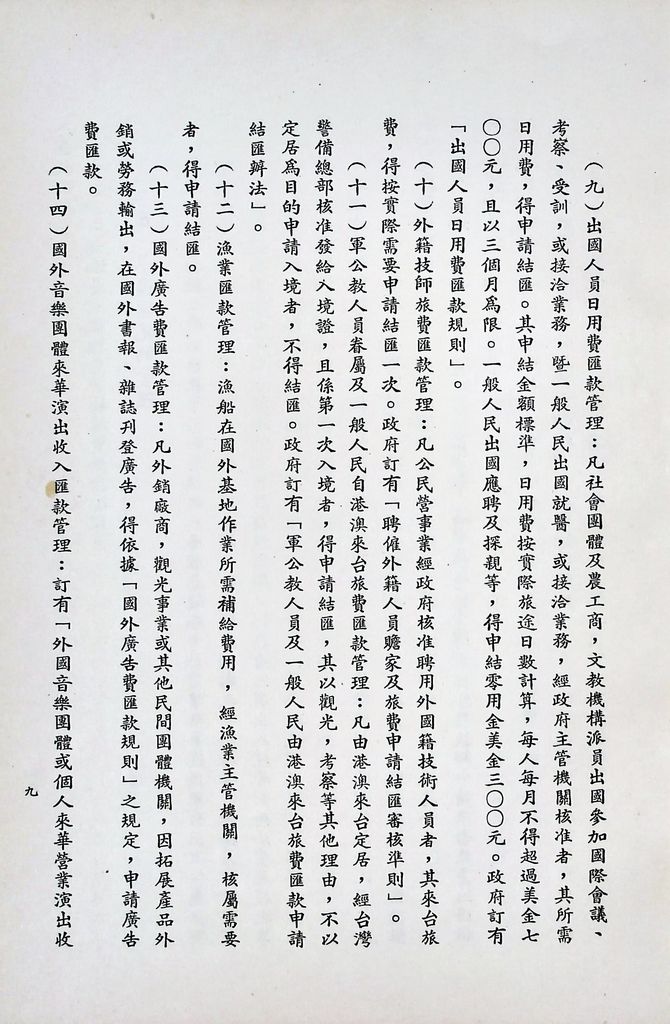 （九）出國人員日用費匯款管理：凡社會團體及農工商，文教機構派員出國參加國際會議、
考察、受訓，或接洽業務，暨一般人民出國就醫，或接洽業務，經政府主管機關核准者，其所需
日用費，得申請結匯。其申結金額標準，日用費按實際旅途日數計算，每人每月不得超過美金七
〇〇元，且以三個月為限。一般人民出國應聘及探親等，得申結零用金美金三〇〇元。政府訂有
「出國人員日用費匯款規則」。
（十）外籍技師旅費匯款管理：凡公民營事業經政府核准聘用外國籍技術人員者，其來台旅
費，得按實際需要申請結匯一次。政府訂有「聘僱外籍人員贍家及旅費申請結匯審核準則」。
（十一）軍公教人員眷屬及一般人民自港澳來台旅費匯款管理：凡由港澳來台定居，經台灣
警備總部核准發給入境證，且係第一次入境者，得申請結匯，其以觀光，考察等其他理由，不以
定居為目的申請入境者，不得結匯。政府訂有「軍公教人員及一般人民由港澳來台旅費匯款申請
結匯辦法」。
（十二）漁業匯款管理：漁船在國外基地作業所需補給費用，經漁業主管機關，核屬需要
者，得申請結匯。
（十三）國外廣告費匯款管理：凡外銷廠商，觀光事業或其他民間團體機關，因拓展產品外
銷或勞務輸出，在國外書報、雜誌刊登廣告，得依據「國外廣告費匯款規則」之規定，申請廣告
費匯款。
（十四）國外音樂團體來華演出收入匯款管理：訂有「外國音樂團體或個人來華營業演出收
九